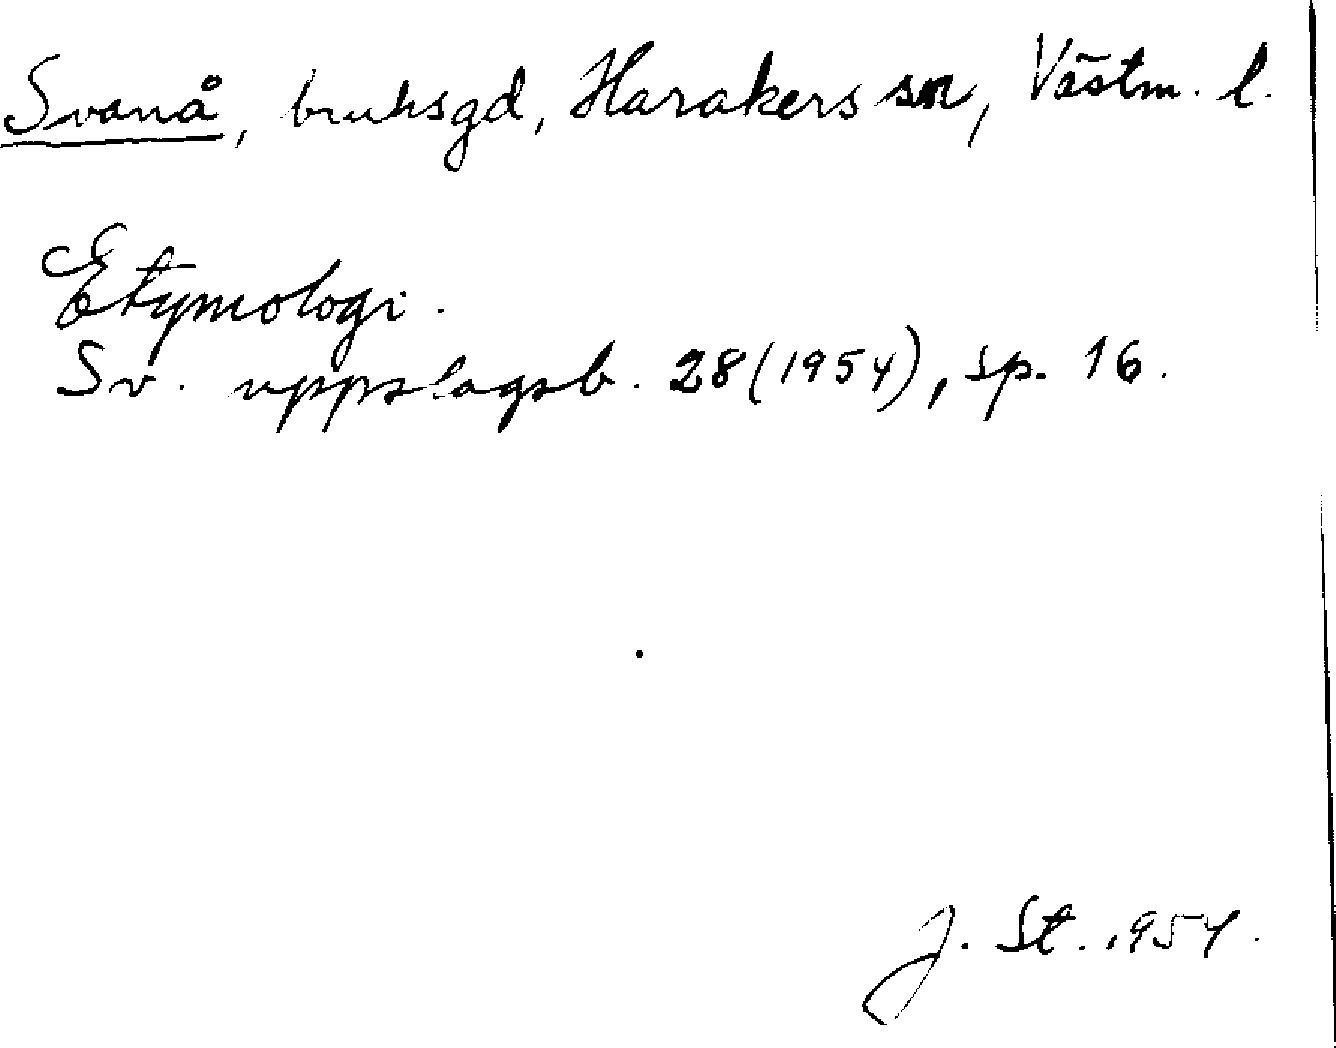 Svanå, bruksgd, Harakers sn, Västm. l.
Etymologi.
Sv. uppslagsb. 28 (1954), sp. 16.
J. St. 1954.